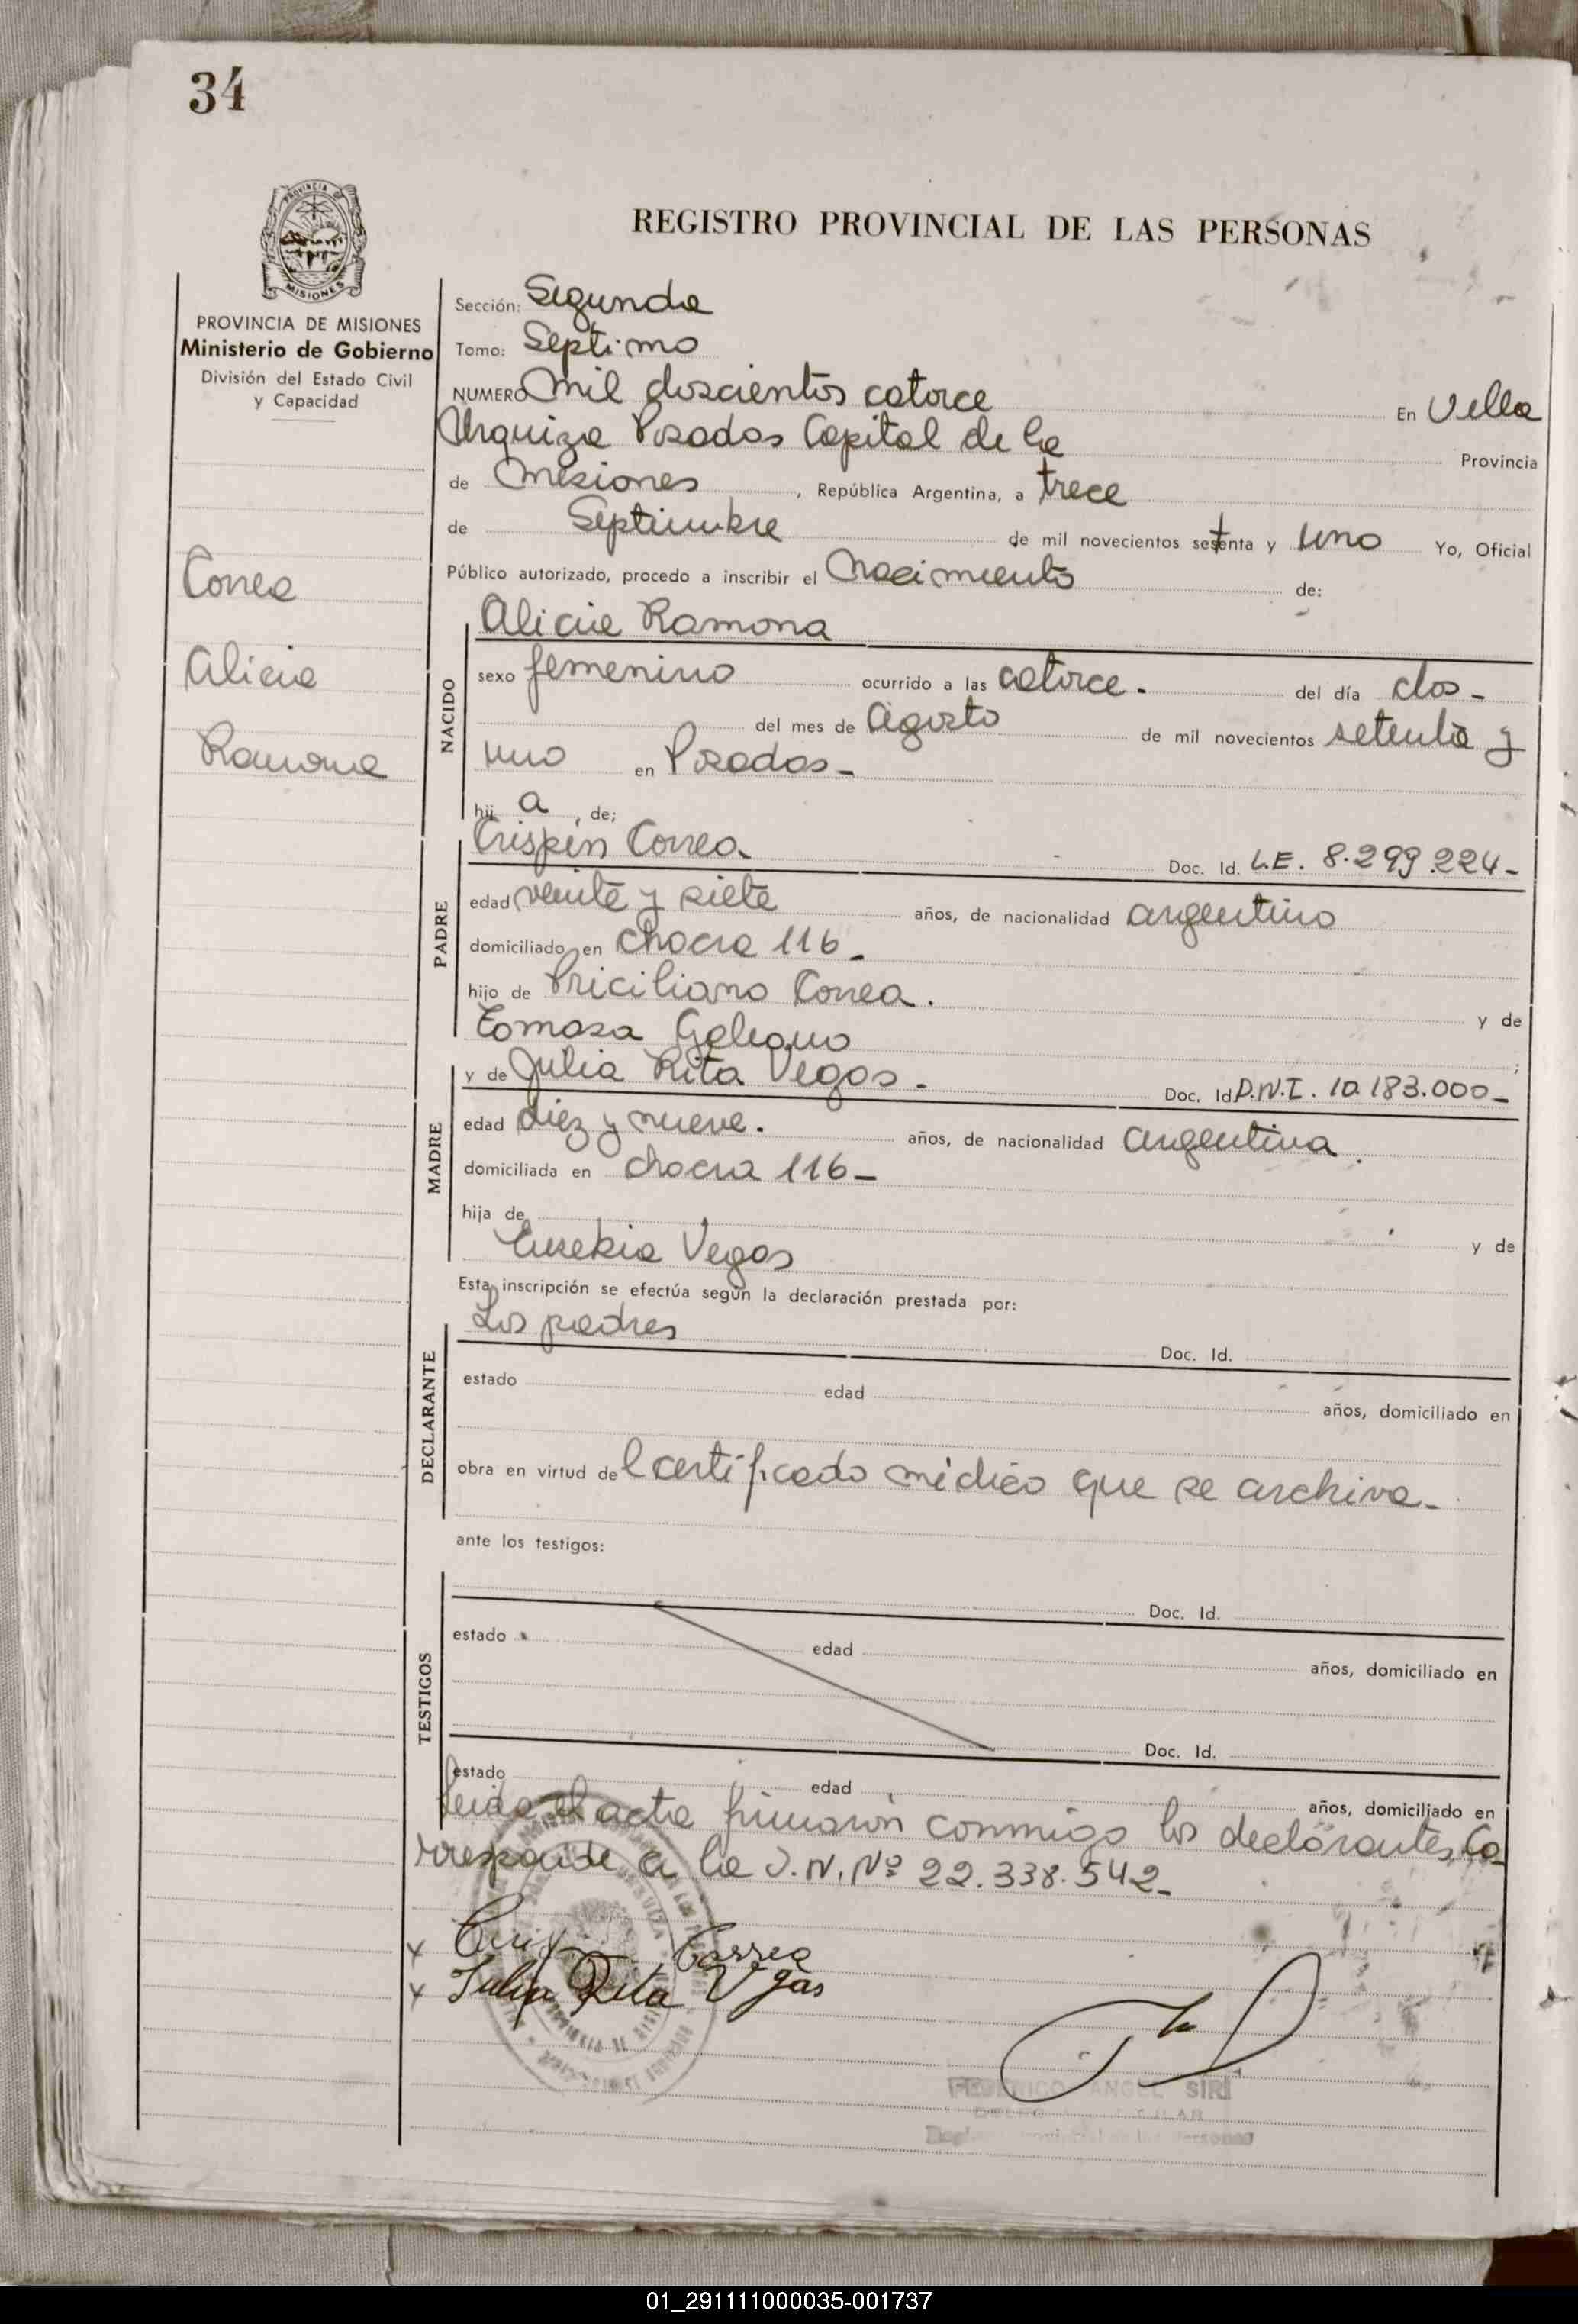 34
PROVINCIA DE
MISIONES
PROVINCIA DE MISIONES
Ministerio de Gobierno
División del Estado Civil
y Capacidad
Correa
Alicia
Ramona
REGISTRO PROVINCIAL DE LAS PERSONAS
Sección: Segunda
Tomo: Septimo
NUMERO mil doscientos catorce En Villa
Urquiza Posadas Capital de la Provincia
de Misiones, República Argentina, a trece
de Septiembre de mil novecientos setenta y uno Yo, Oficial
Público autorizado, procedo a inscribir el nacimiento de:
NACIDO
Alicia Ramona
sexo femenino ocurrido a las catorce. del día dos-
del mes de Agosto de mil novecientos setenta y
uno en Posadas-
hij a, de;
PADRE
Crispín Correa Doc. Id. L.E. 8.299.224-
edad veinte y siete años, de nacionalidad argentino
domiciliado en chacra 116-
hijo de Priciliano Correa. y de
Tomasa Galeano ;
MADRE
y de Julia Rita Vegas- Doc. Id D.N.I. 10.183.000-
edad diez y nueve. años, de nacionalidad argentina.
domiciliada en chacra 116-
hija de y de
Eusebia Vegas
Esta inscripción se efectúa según la declaración prestada por:
DECLARANTE
Los padres Doc. Id.
estado edad años, domiciliado en
obra en virtud del certificado médico que se archiva-
ante los testigos:
TESTIGOS
Doc. Id.
estado edad años, domiciliado en
Doc. Id.
estado edad años, domiciliado en
leida el acta firmaron conmigo los declarantes. Co-
rresponde a la I.N. Nº 22.338.542-
x Correa
x Julia Rita Vgas
FEDERICO ANGEL SIRI
01_291111000035-001737